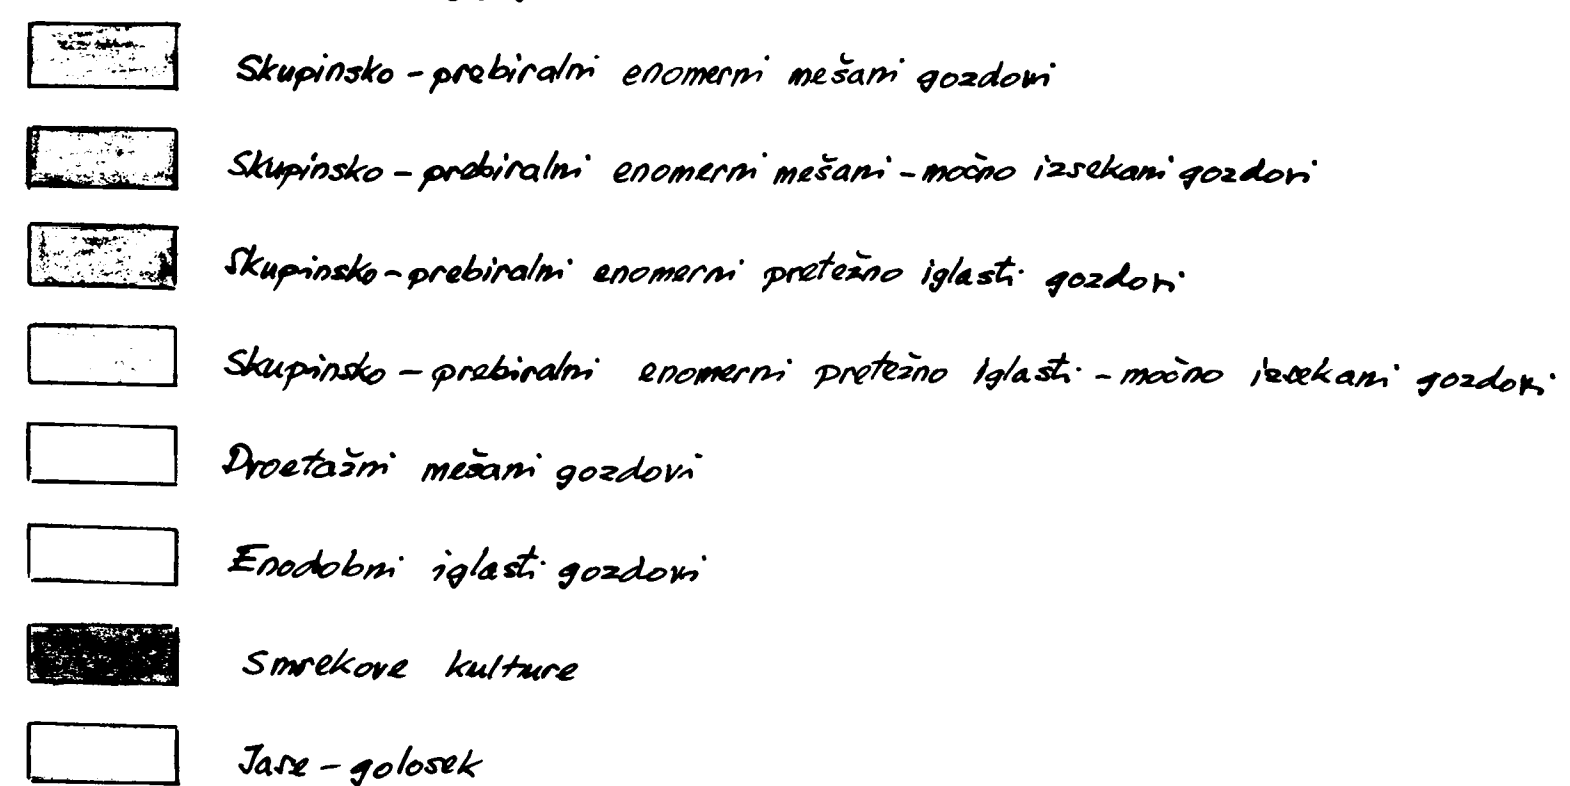 Skupinsko - prebiralni enomerni mešani gozdovi
Skupinsko - prebiralni enomerni mešani - močno izsekani gozdovi
Skupinsko - prebiralni enomerni pretežno iglasti gozdovi
Skupinsko - prebiralni enomerni pretežno iglasti - močno izsekani gozdovi
Dvoetažni mešani gozdovi
Enodobni iglasti gozdovi
Smrekove kulture
Jase - golosek